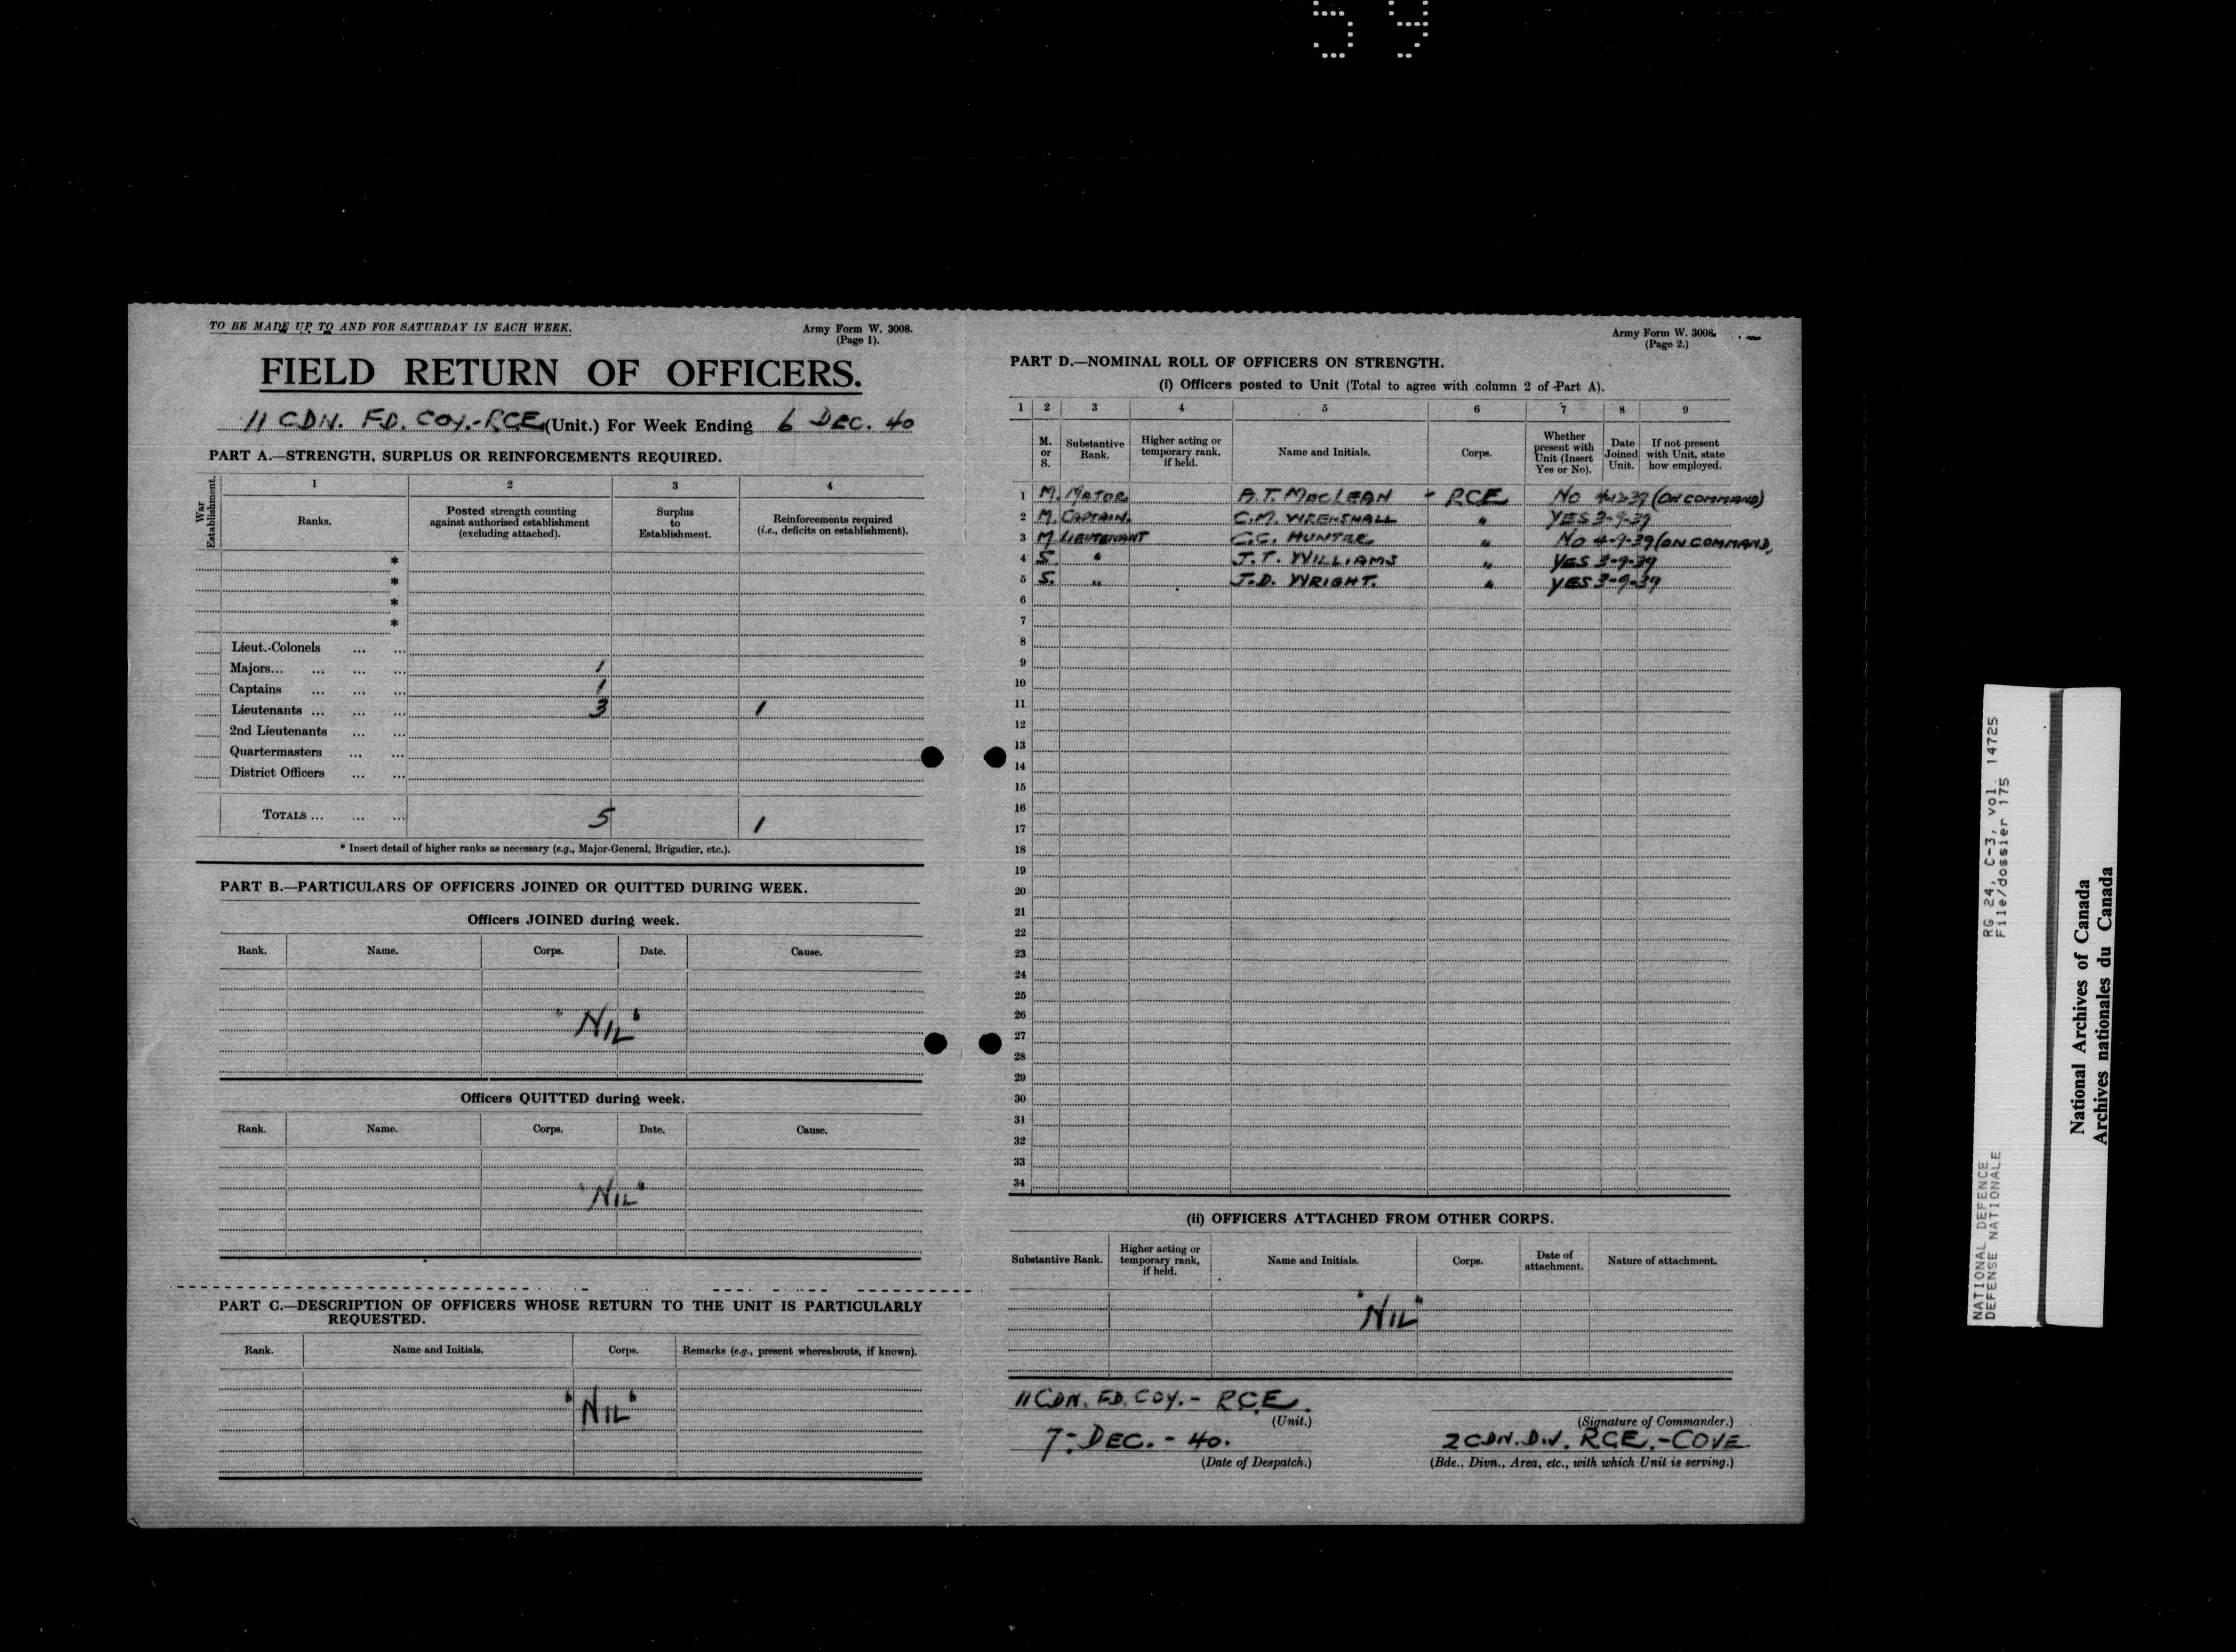 59
TO BE MADE UP TO AND FOR SATURDAY IN EACH WEEK.
Army Form W. 3008.
(Page 1).
FIELD RETURN OF OFFICERS.
11 CDN. FD. COY.-RCE (Unit.) For Week Ending 6 DEC. 40
PART A.—STRENGTH, SURPLUS OR REINFORCEMENTS REQUIRED.
War Establishment.
1 2 3 4
Ranks.
Posted strength counting against authorised establishment (excluding attached).
Surplus to Establishment.
Reinforcements required (i.e., deficits on establishment).
*
*
*
*
Lieut.-Colonels ... ...
Majors... ... ... ... 1
Captains ... ... ... 1
Lieutenants ... ... ... 3 1
2nd Lieutenants ... ...
Quartermasters ... ...
District Officers ... ...
TOTALS ... ... ... 5 1
* Insert detail of higher ranks as necessary (e.g., Major-General, Brigadier, etc.).
PART B.—PARTICULARS OF OFFICERS JOINED OR QUITTED DURING WEEK.
Officers JOINED during week.
Rank. Name. Corps. Date. Cause.
"NIL"
Officers QUITTED during week.
Rank. Name. Corps. Date. Cause.
"NIL"
PART C.—DESCRIPTION OF OFFICERS WHOSE RETURN TO THE UNIT IS PARTICULARLY
REQUESTED.
Rank. Name and Initials. Corps. Remarks (e.g., present whereabouts, if known).
"NIL"
Army Form W. 3008.
(Page 2.)
PART D.—NOMINAL ROLL OF OFFICERS ON STRENGTH.
(i) Officers posted to Unit (Total to agree with column 2 of Part A).
1 2 3 4 5 6 7 8 9
M. or S.
Substantive Rank.
Higher acting or temporary rank, if held.
Name and Initials.
Corps.
Whether present with Unit (Insert Yes or No).
Date Joined Unit.
If not present with Unit, state how employed.
1 M. MAJOR A.T. MACLEAN - RCE NO (ON COMMAND)
2 M. CAPTAIN. C.M. WRENSHALL " YES 3-9-39
3 M. LIEUTENANT C.C. HUNTER " NO 4-9-39 (ON COMMAND)
4 S. " J.T. WILLIAMS " YES 3-9-39
5 S. " J.D. WRIGHT. " YES 3-9-39
6
7
8
9
10
11
12
13
14
15
16
17
18
19
20
21
22
23
24
25
26
27
28
29
30
31
32
33
34
(ii) OFFICERS ATTACHED FROM OTHER CORPS.
Substantive Rank.
Higher acting or temporary rank, if held.
Name and Initials.
Corps.
Date of attachment.
Nature of attachment.
"NIL"
11 CDN. FD. COY.- RCE.
(Unit.)
(Signature of Commander.)
7-DEC.-40.
(Date of Despatch.)
2 CDN. DIV. RCE.-COVE
(Bde., Divn., Area, etc., with which Unit is serving.)
NATIONAL DEFENCE RG 24, C-3, vol. 14725
DEFENSE NATIONALE File/dossier 175
National Archives of Canada
Archives nationales du Canada